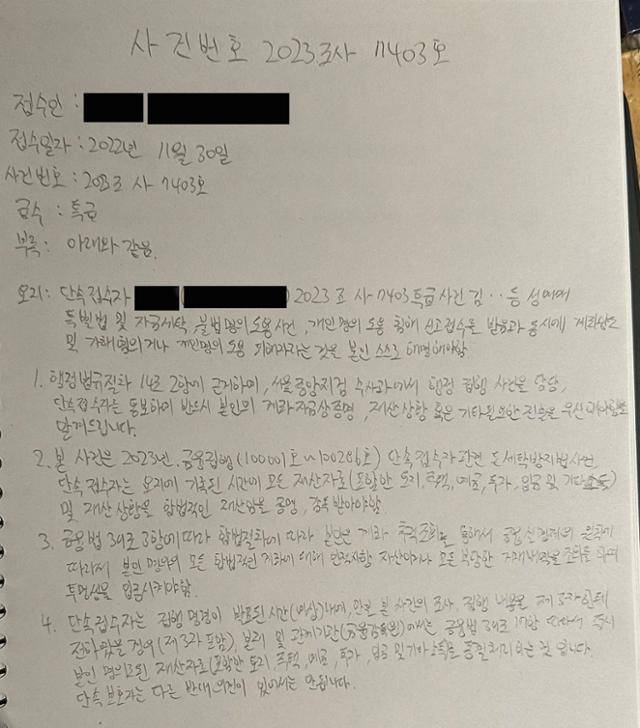 사건번호 2023조사 7403호
접수인 :
접수일자 : 2022년 11월 30일
사건번호 : 2023조 사 7403호
급수 : 특급
부록 : 아래와 같음.
요지 : 단속접수자 ( ) 2023 조 사 7403 특급사건 김‥등 성매매
특별법 및 자금세탁, 불법명의도용사건, 개인명의 도용 침해 신고접수를 받음과 동시에 계좌양도
및 가해혐의거나 개인명의도용 피해자라는것을 본인 스스로 해명해야함
1. 행정법규절차 14조 2항에 근거하여, 서울중앙지검 수사과에서 행정 집행 사건을 담당,
단속접수자는 통보하여 반드시 본인의 계좌자금상증명, 재산상황 혹은 기타필요한 진술을
당게드립니다.
2. 본 사건은 2023년. 금융집행(100001호~100286호) 단속접수자관련 돈세탁방지법사건
단속접수자는 요지에 기록된 시간에 모든 재산자료(포함한 토지, 주택, 예금, 투자, 입금 및 기타소득)
및 재산 상황을 합법적인 재산임을 증명, 감독 받아야함.
3. 금융법 3조 3항에따라 합법절차에 따라 본인은 계좌 추적조회를 통해서 공용 원칙에
따라서 본인 명의의 모든 합법적인 계좌에 대해 인적사항 자산이거나 모든 부당한 거래내역을 조사를 하며
투명성을 입증시켜야함.
4. 단속접수자는 집행 명령이 발표된 시간 내에, 만일 본 사건의 조사, 집행 내용을 제 3자한테
전하였을 경우(제 3자 포함), 본래 및 관계기관(금융감독원)에서는 금융법 3조 1항 따라서 즉시
본인 명의로된 재산자료(포함한 토지, 주택, 예금, 투자, 입금 및 기타소득)을 동결처리 하는 것 입니다.
단속 보호자는 다른 반대의견이 있어서는 안됩니다.